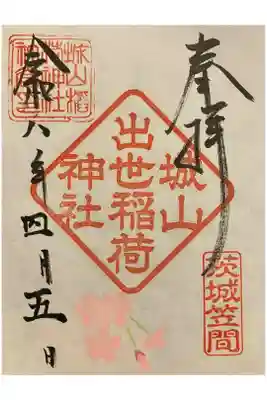 奉拝
茨城笠間
城山
出世稲荷
神社
城山稲
荷神社
令和六年四月五日